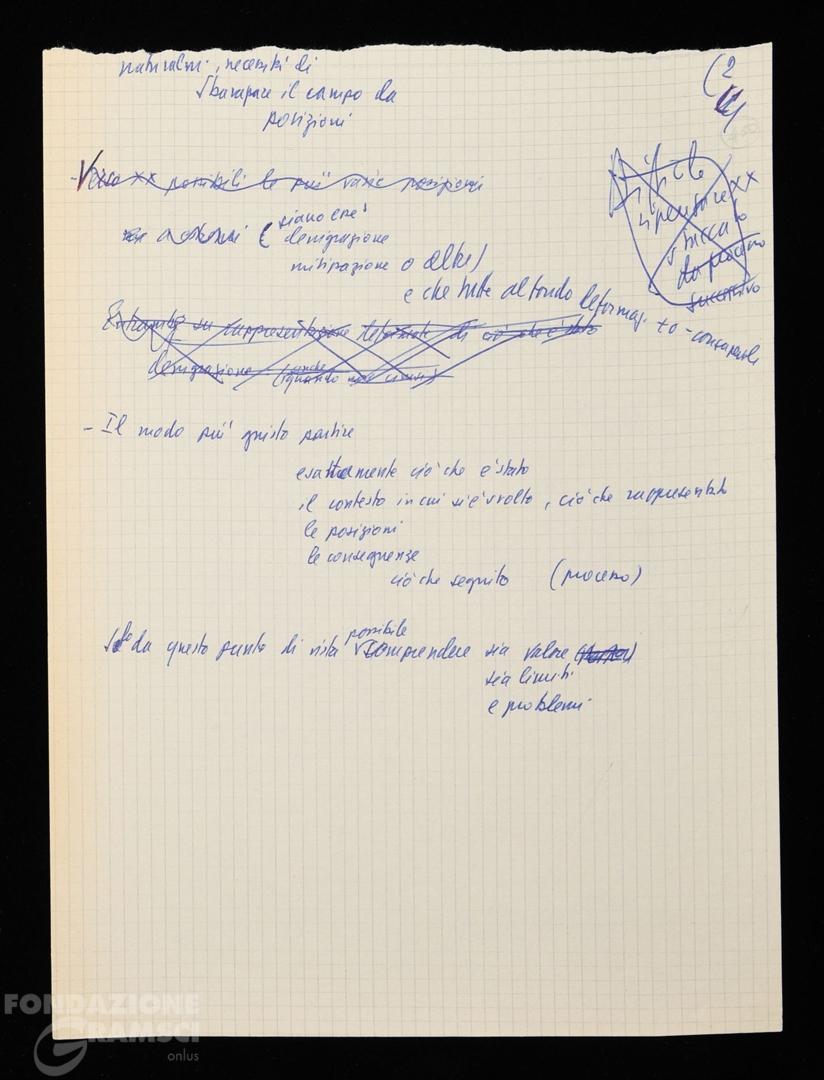 naturalm., necessità di
sbarazzare il campo da
posizioni
(2
- Verso XX possibili le più varie posizioni
siano esse
denigrazione
mitizzazione o altre)
e che tutte al fondo deformaz.
Difficile
ripensare XX
staccato
da processo
successivo
Entrambe su rappresentazione deformate di ciò che è stato
denigrazione anche
(quando
- Il modo più giusto partire
esattamente ciò che è stato
il contesto in cui si è svolto, ciò che rappresentato
le posizioni
le conseguenze
ciò che seguito (processo)
Solo da questo punto di vista possibile comprendere sia valore
sia limiti
e problemi
FONDAZIONE
GRAMSCI
onlus